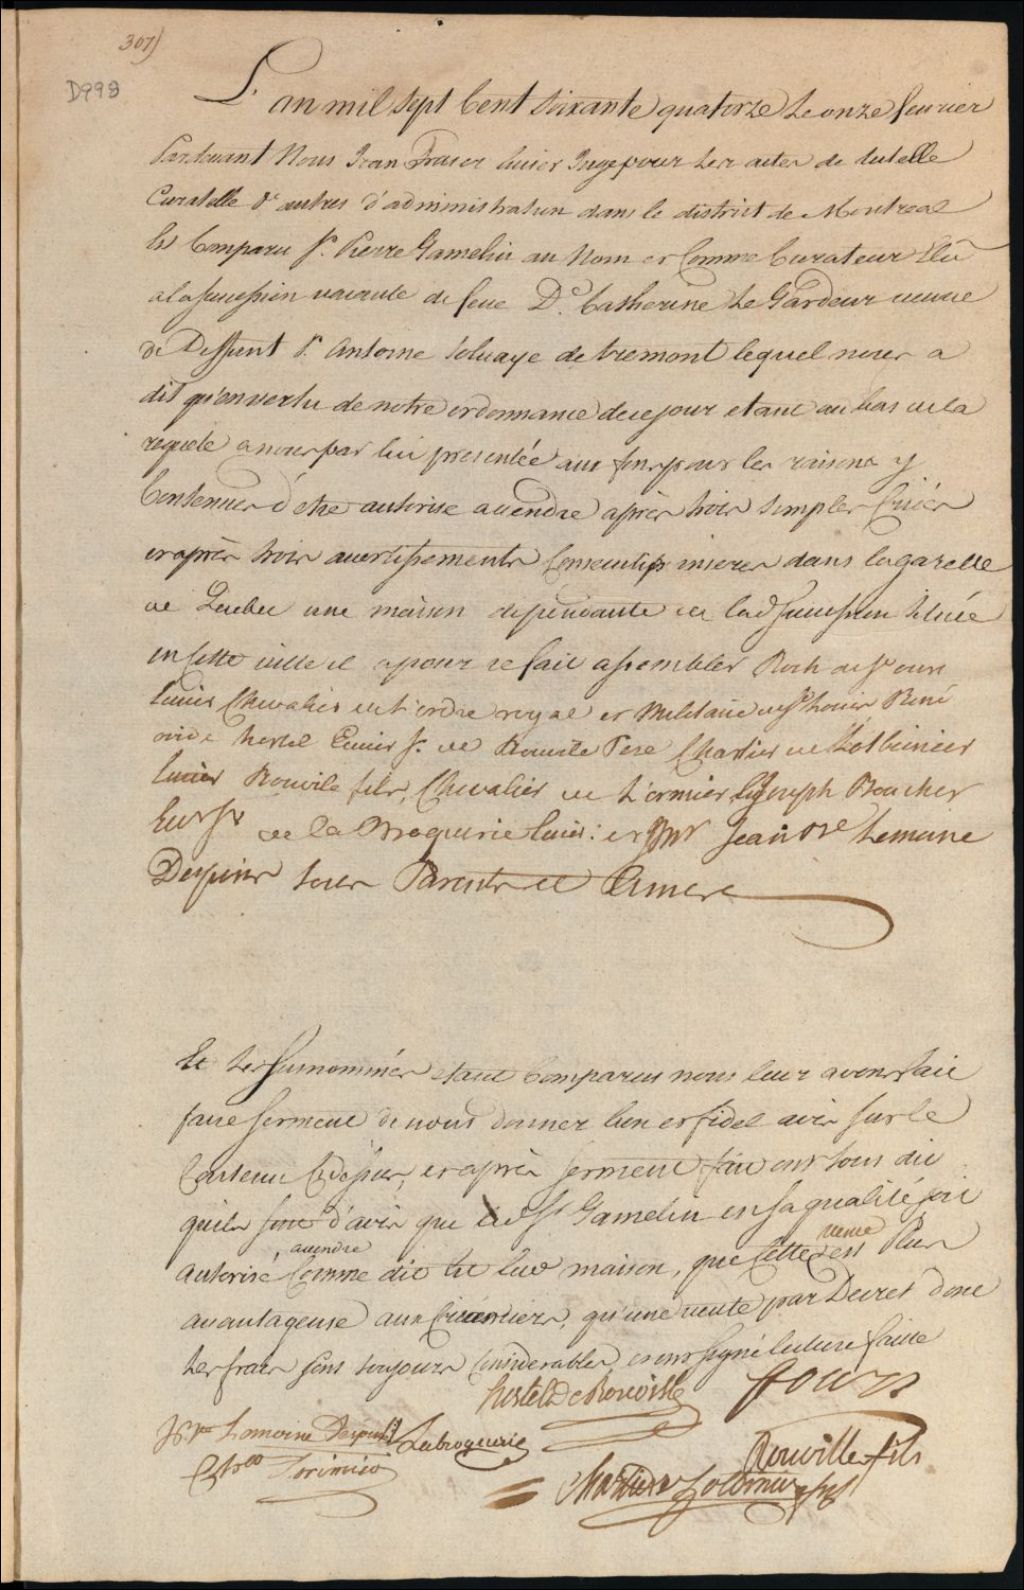 307)
D998
L'an mil sept Cent soixante quatorze Le onze fevrier
Pardevant Nous Jean Fraser Ecuier Juge pour Les actes de tutelle
Curatelle & autres d'administration dans le district de Montreal
Est Comparu Sr. Pierre Gamelin au Nom et Comme Curateur Elû
a la succession vacante de feue De. Catherine Le Gardeur veuve
de Deffunt Sr. Antoine Toluaye de tremont lequel nous a
dit qu'en vertu de notre ordonnance de ce jour etant au bas de la
requete a nous par lui presentée aux fins pour les raisons y
Contenues d'etre autorise a vendre après trois simples Criées
et après trois avertissements Consecutifs inserés dans la gazette
de Quebec une maison dependante de lad succession située
en Cette ville il a pour ce fait assembler Roch de St ours
Ecuier Chevalier de L'ordre royal et Militaire de St Louis René
ovide hertel Ecuier Sr. de Rouville Pere Chartier de Lotbiniere
Ecuier Rouvile fils, Chevalier de Lorimier Joseph Boucher
Ecr Sr de la Broquerie Ecuier: et Jean Bte Lemoine
Despins tous Parents et Amis
Et Les surnommés etant Comparus nous leur avons fait
faire serment de nous donner bon et fidel avis sur le
Contenu Cy dessus, et après serment fait ont tous dit
quils sont d'avis que led Sr Gamelin en sa qualité soit
a vendre vente
autorisé Comme dit est lad maison, que Cette est Plus
avantageuse aux Creanciers, qu'une vente par Decret dont
Les frais sont toujours Considerables, et ont signé lecture faitte
hertel De Rouville St ours
J. Bte Lemoine Despins Labroquerie Rouville fils
Chever Lorimier Chartier Lotbiniere